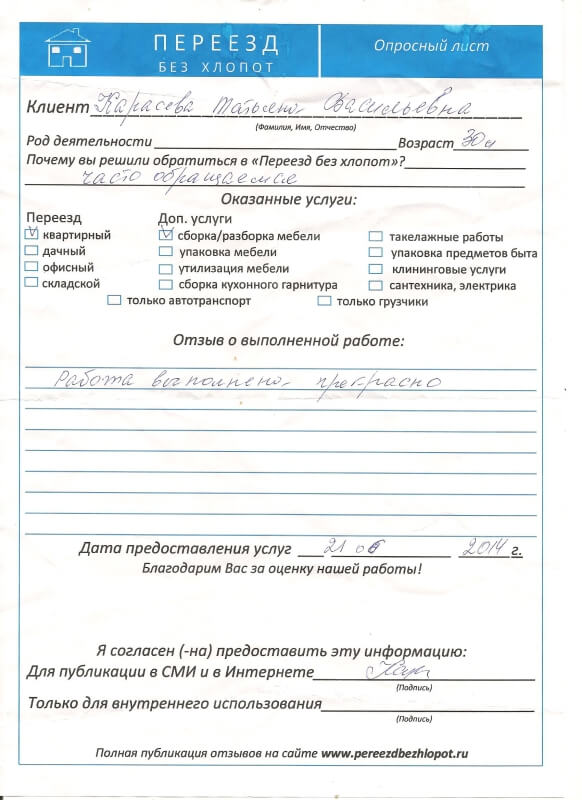 ПЕРЕЕЗД
БЕЗ ХЛОПОТ
Опросный лист
Клиент Карасева Татьяна Васильевна
(Фамилия, Имя, Отчество)
Род деятельности Возраст 30л
Почему вы решили обратиться в «Переезд без хлопот»?
часто обращаемся
Оказанные услуги:
Переезд Доп. услуги
квартирный сборка/разборка мебели такелажные работы
дачный упаковка мебели упаковка предметов быта
офисный утилизация мебели клининговые услуги
складской сборка кухонного гарнитура сантехника, электрика
только автотранспорт только грузчики
Отзыв о выполненной работе:
Работа выполнена прекрасно
Дата предоставления услуг 21 06 2014 г.
Благодарим Вас за оценку нашей работы!
Я согласен (-на) предоставить эту информацию:
Для публикации в СМИ и в Интернете
(Подпись)
Только для внутреннего использования
(Подпись)
Полная публикация отзывов на сайте www.pereezdbezhlopot.ru